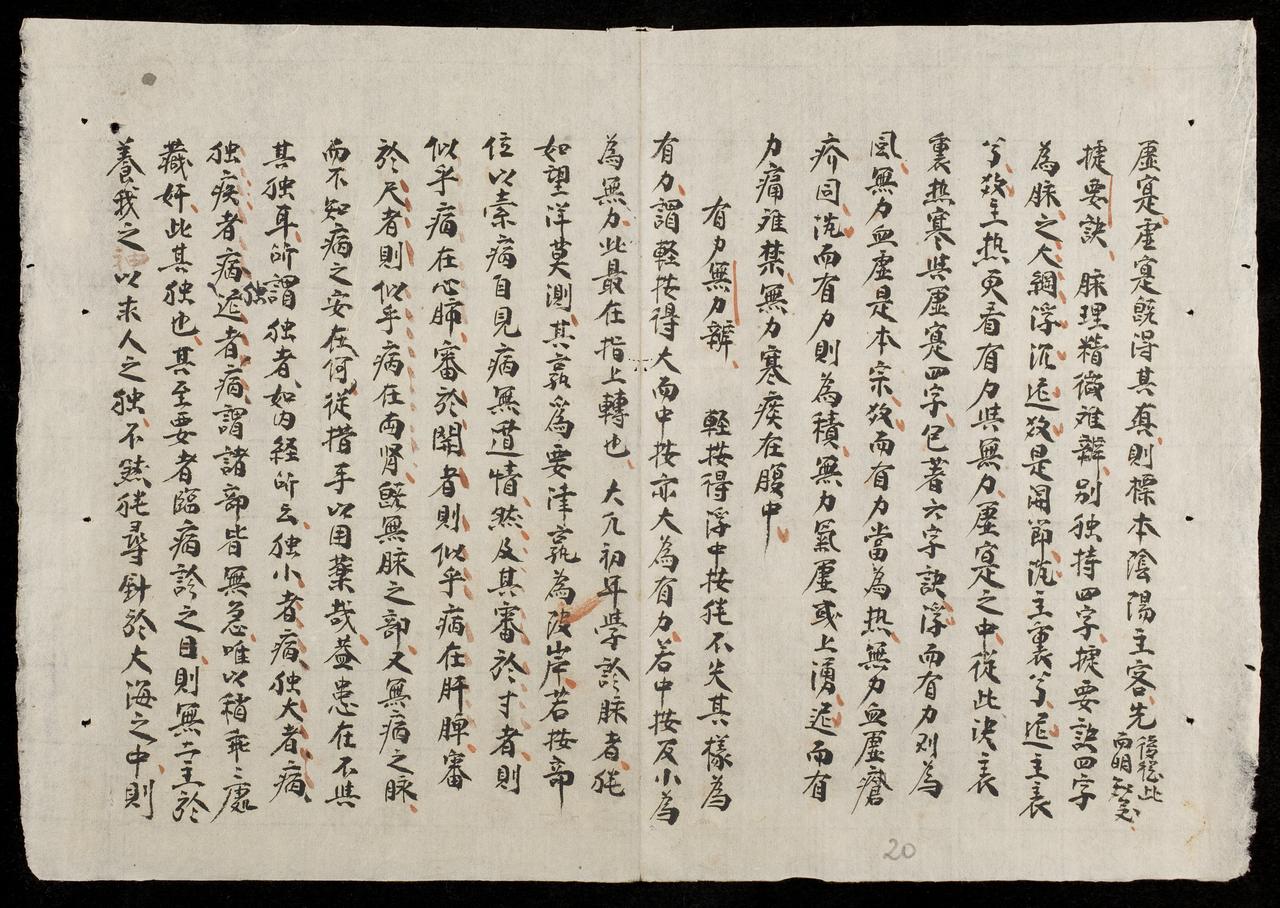 虛寔虛寔既得其真則標本陰陽主客先後從此而明
捷要訣 脉理精微难辨别独持四字捷要訣四字
為脉之大綱浮沉迟数是関節沉主裏兮迟主表
兮数主热更看有力與無力虛寔之中從此决表
裏热寒與虛寔四字包著六字訣浮而有力则為
風無力血虛是本宗数而有力當為热無力血虛瘡
疥同沉而有力則為積無力氣虛或上湧迟而有
力痛难禁無力寒痰在腹中
有力無力辨 輕按得浮中按後不失其樣為
有力謂輕按得大而中按亦大為有力若中按反小為
為無力此最在指上轉也 大凡初年學診脉者
如望洋莫測其孰為要津孰為彼岸若按部
位以索病自見病無遁情然及其審於寸者則
似乎病在心肺審於関者則似乎病在肝脾審
於尺者則似乎病在両肾既無脉之部又無病之脉
而不知病之安在何從措手以用藥哉蓋患在不甚
其独耳所謂独者如内経所云独小者病独大者病
独疾者病独迟者病謂諸部皆無恙唯以稍乖之處
藏奸此其独也其至要者臨病診之目則無主於
養我之神以求人之独不然 尋針於大海之中則
20